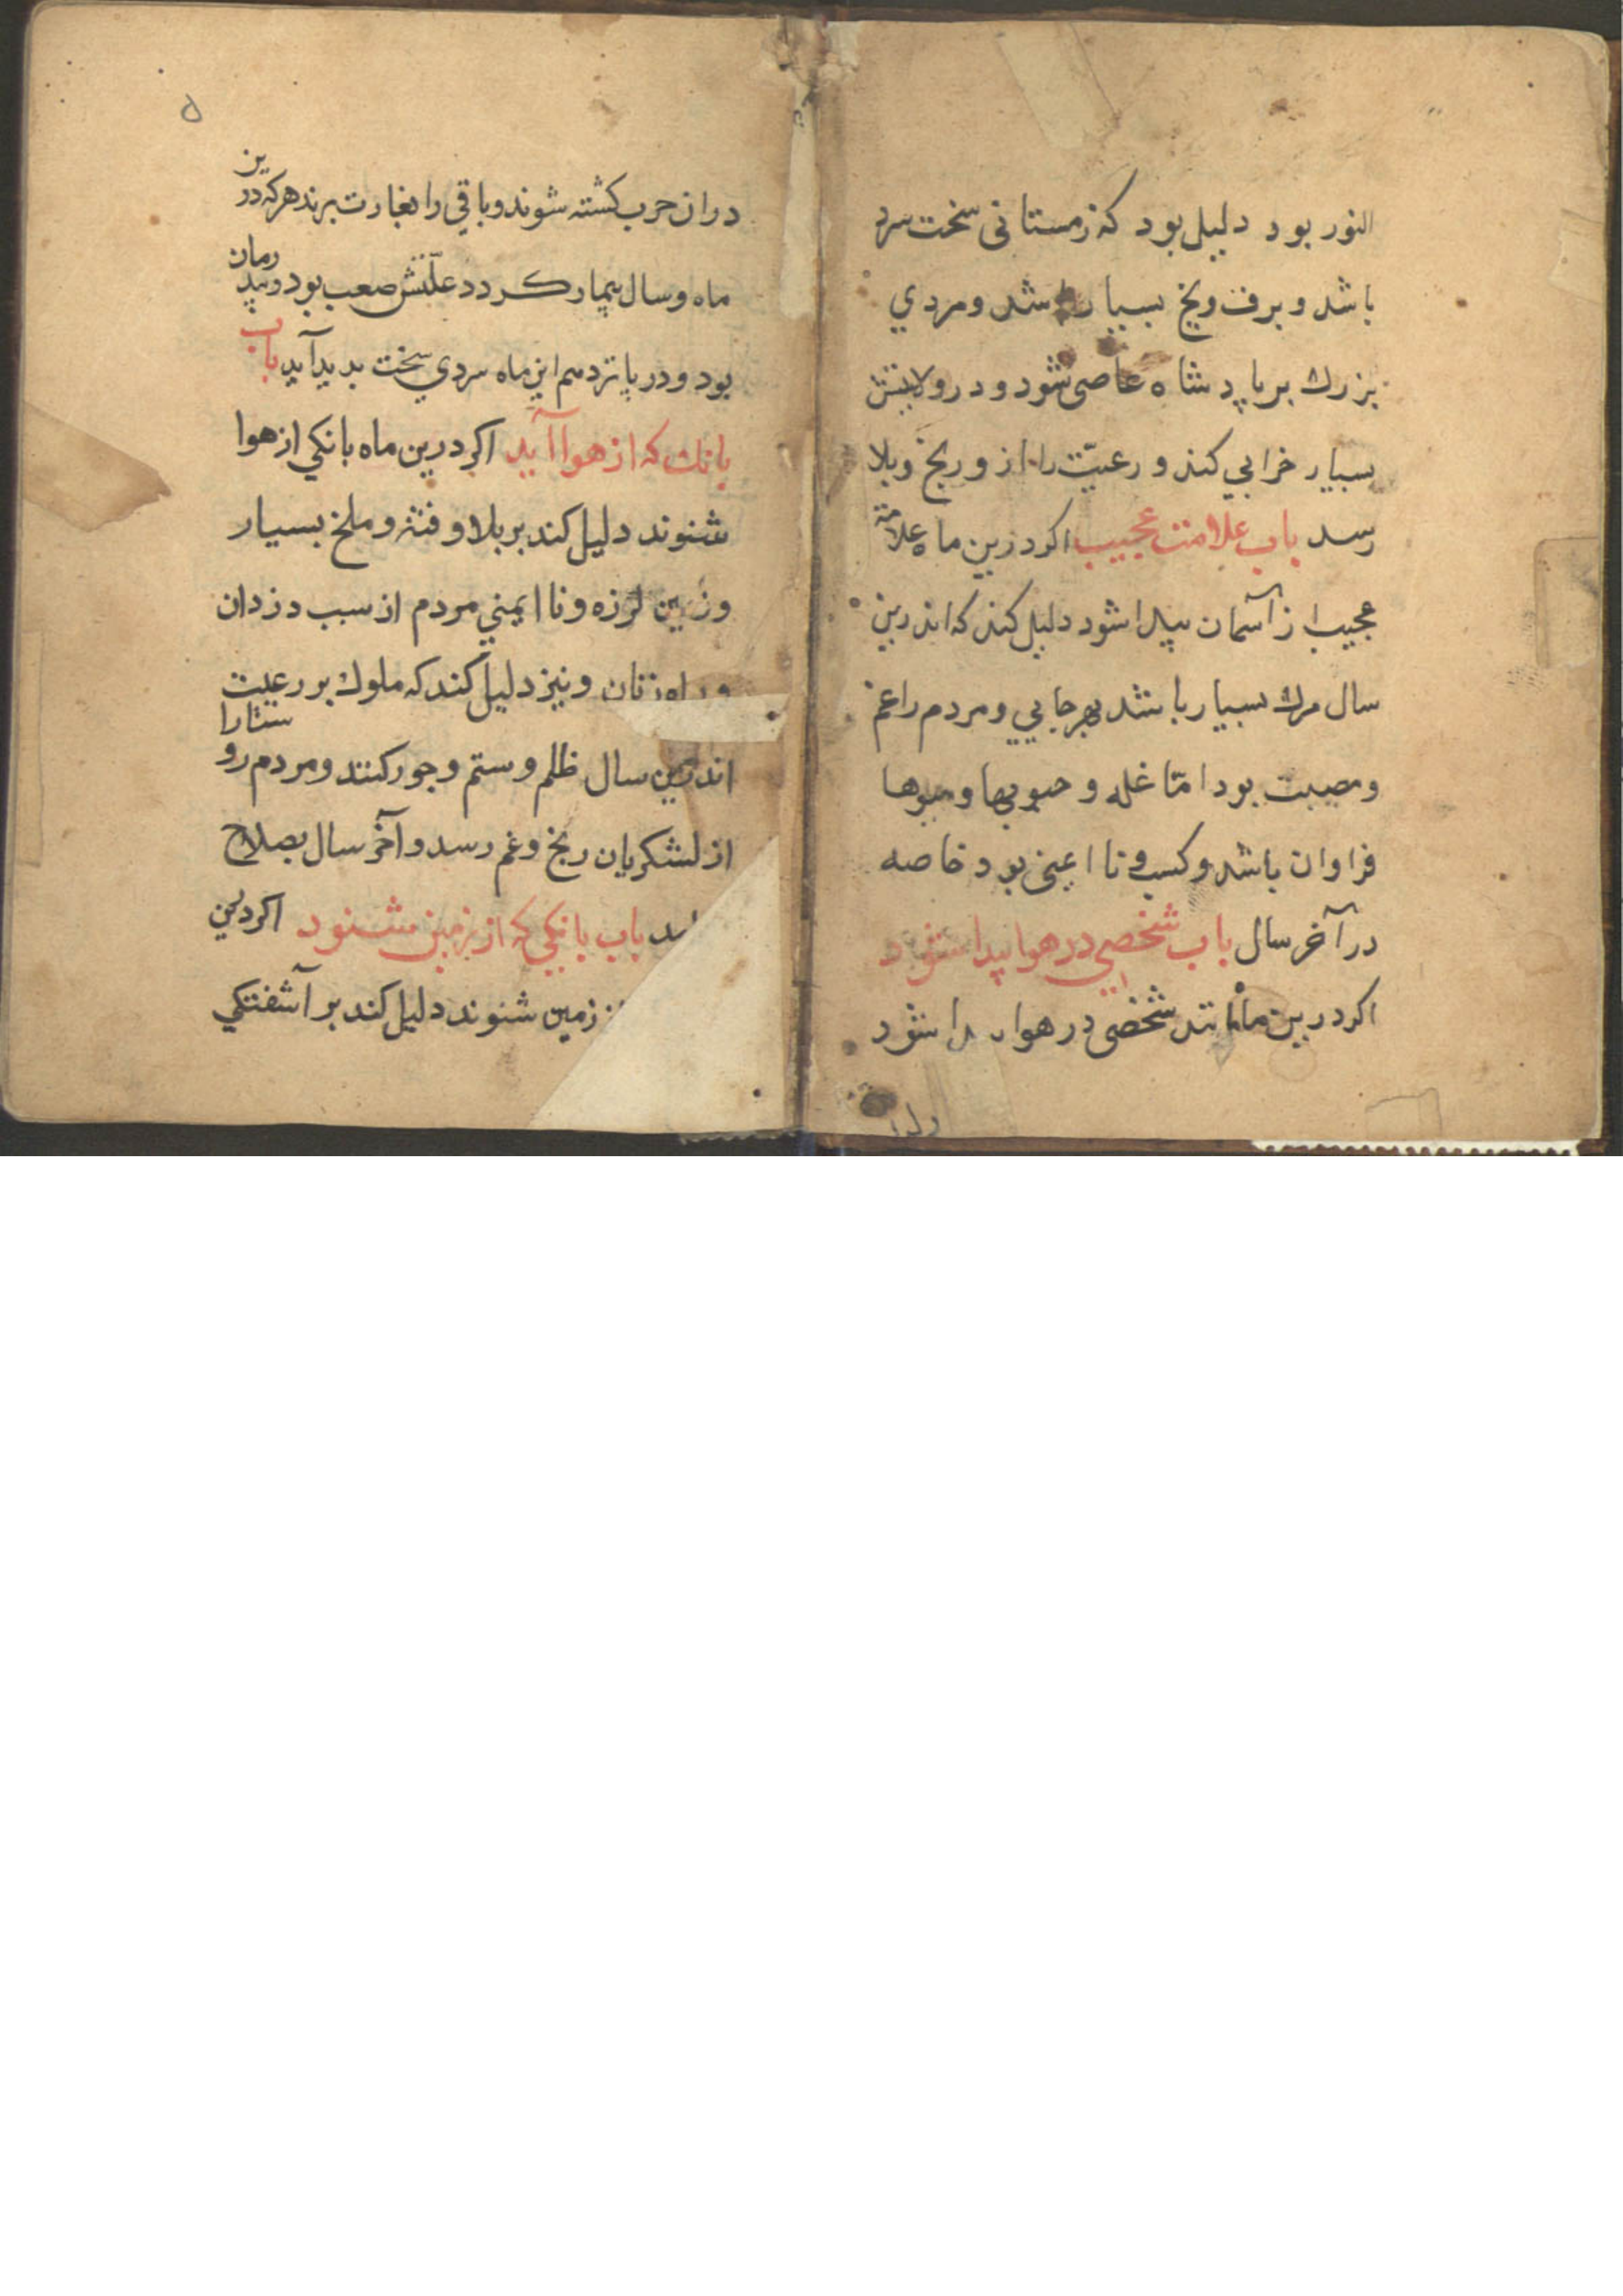 النور بود دليل بود كه زمستانى سخت سرد
باشد و برف ويخ بسيار باشد ومردي
بزرك بر پادشاه عاصى شود ودر ولايتش
بسيار خرابي كند و رعيّت را از و رنج وبلا
رسد باب علامت عجيب اكر درين ماه علامة
عجيب از آسمان پيدا شود دليل كند كه اندرين
سال مرك بسيار باشد بهر جايي ومردم را غم
ومصيبت بود امّا غله و حبوبها وميوها
فراوان باشد وكسب ونا ايمنى بود خاصه
در آخر سال باب شخصي در هوا پيدا شود
اكر درين ماه مانند شخصى در هوا پيدا شود
۵
دران حرب كشته شوند وباقي را بغارت برند هركه درين
ماه وسال بيمار كردد علّتش صعب بود
بود ودر پانزدهم اين ماه سردي سخت بديد آيد باب
بانك كه از هوا آيد اكر درين ماه بانكي از هوا
شنوند دليل كند بر بلا و فتنه و ملخ بسيار
وزمين لرزه ونا ايمني مردم از سبب دزدان
وراه زنان ونيز دليل كند كه ملوك بر رعيت
اندرين سال ظلم وستم وجور كنند ومردم روستا را
از لشكريان رنج وغم رسد وآخر سال بصلاح
باب بانكي كه از زمين شنود اكر درين
زمين شنوند دليل كند بر آشفتكي